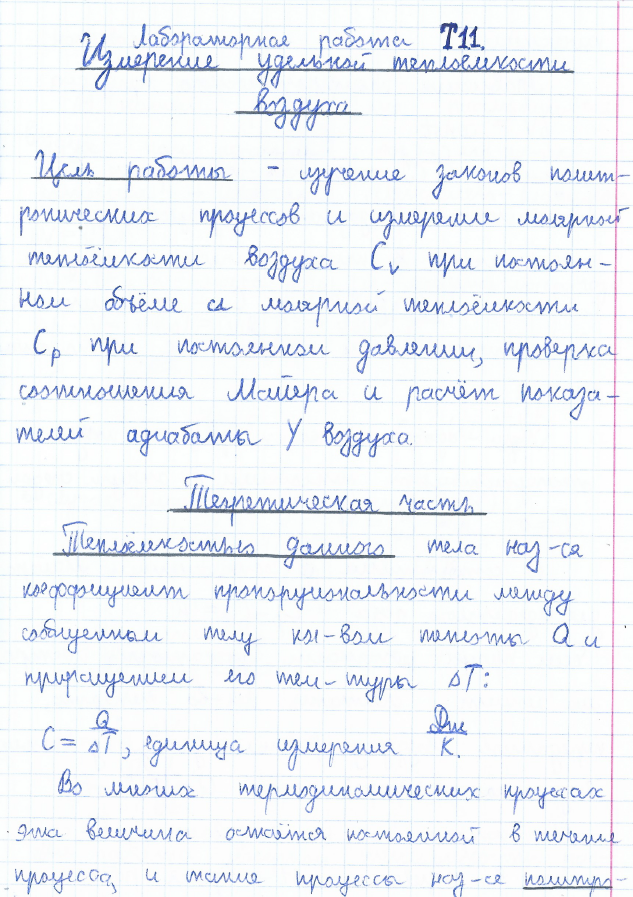 Лабораторная работа Т11.
Измерение удельной теплоёмкости
воздуха
Цель работы - изучение законов полит-
ропических процессов и измерение молярной
теплоёмкости воздуха Cv при постоян-
ном объёме и молярной теплоёмкости
Cp при постоянном давлении, проверка
соотношения Майера и расчёт показа-
телей адиабаты γ воздуха.
Теоретическая часть
Теплоёмкостью данного тела наз-ся
коэффициент пропорциональности между
сообщенным телу кол-вом теплоты Q и
приращением его тем-туры ΔT:
C = Q/ΔT, единица измерения Дж/К.
Во многих термодинамических процессах
эта величина остаётся постоянной в течение
процесса, и такие процессы наз-ся политро-